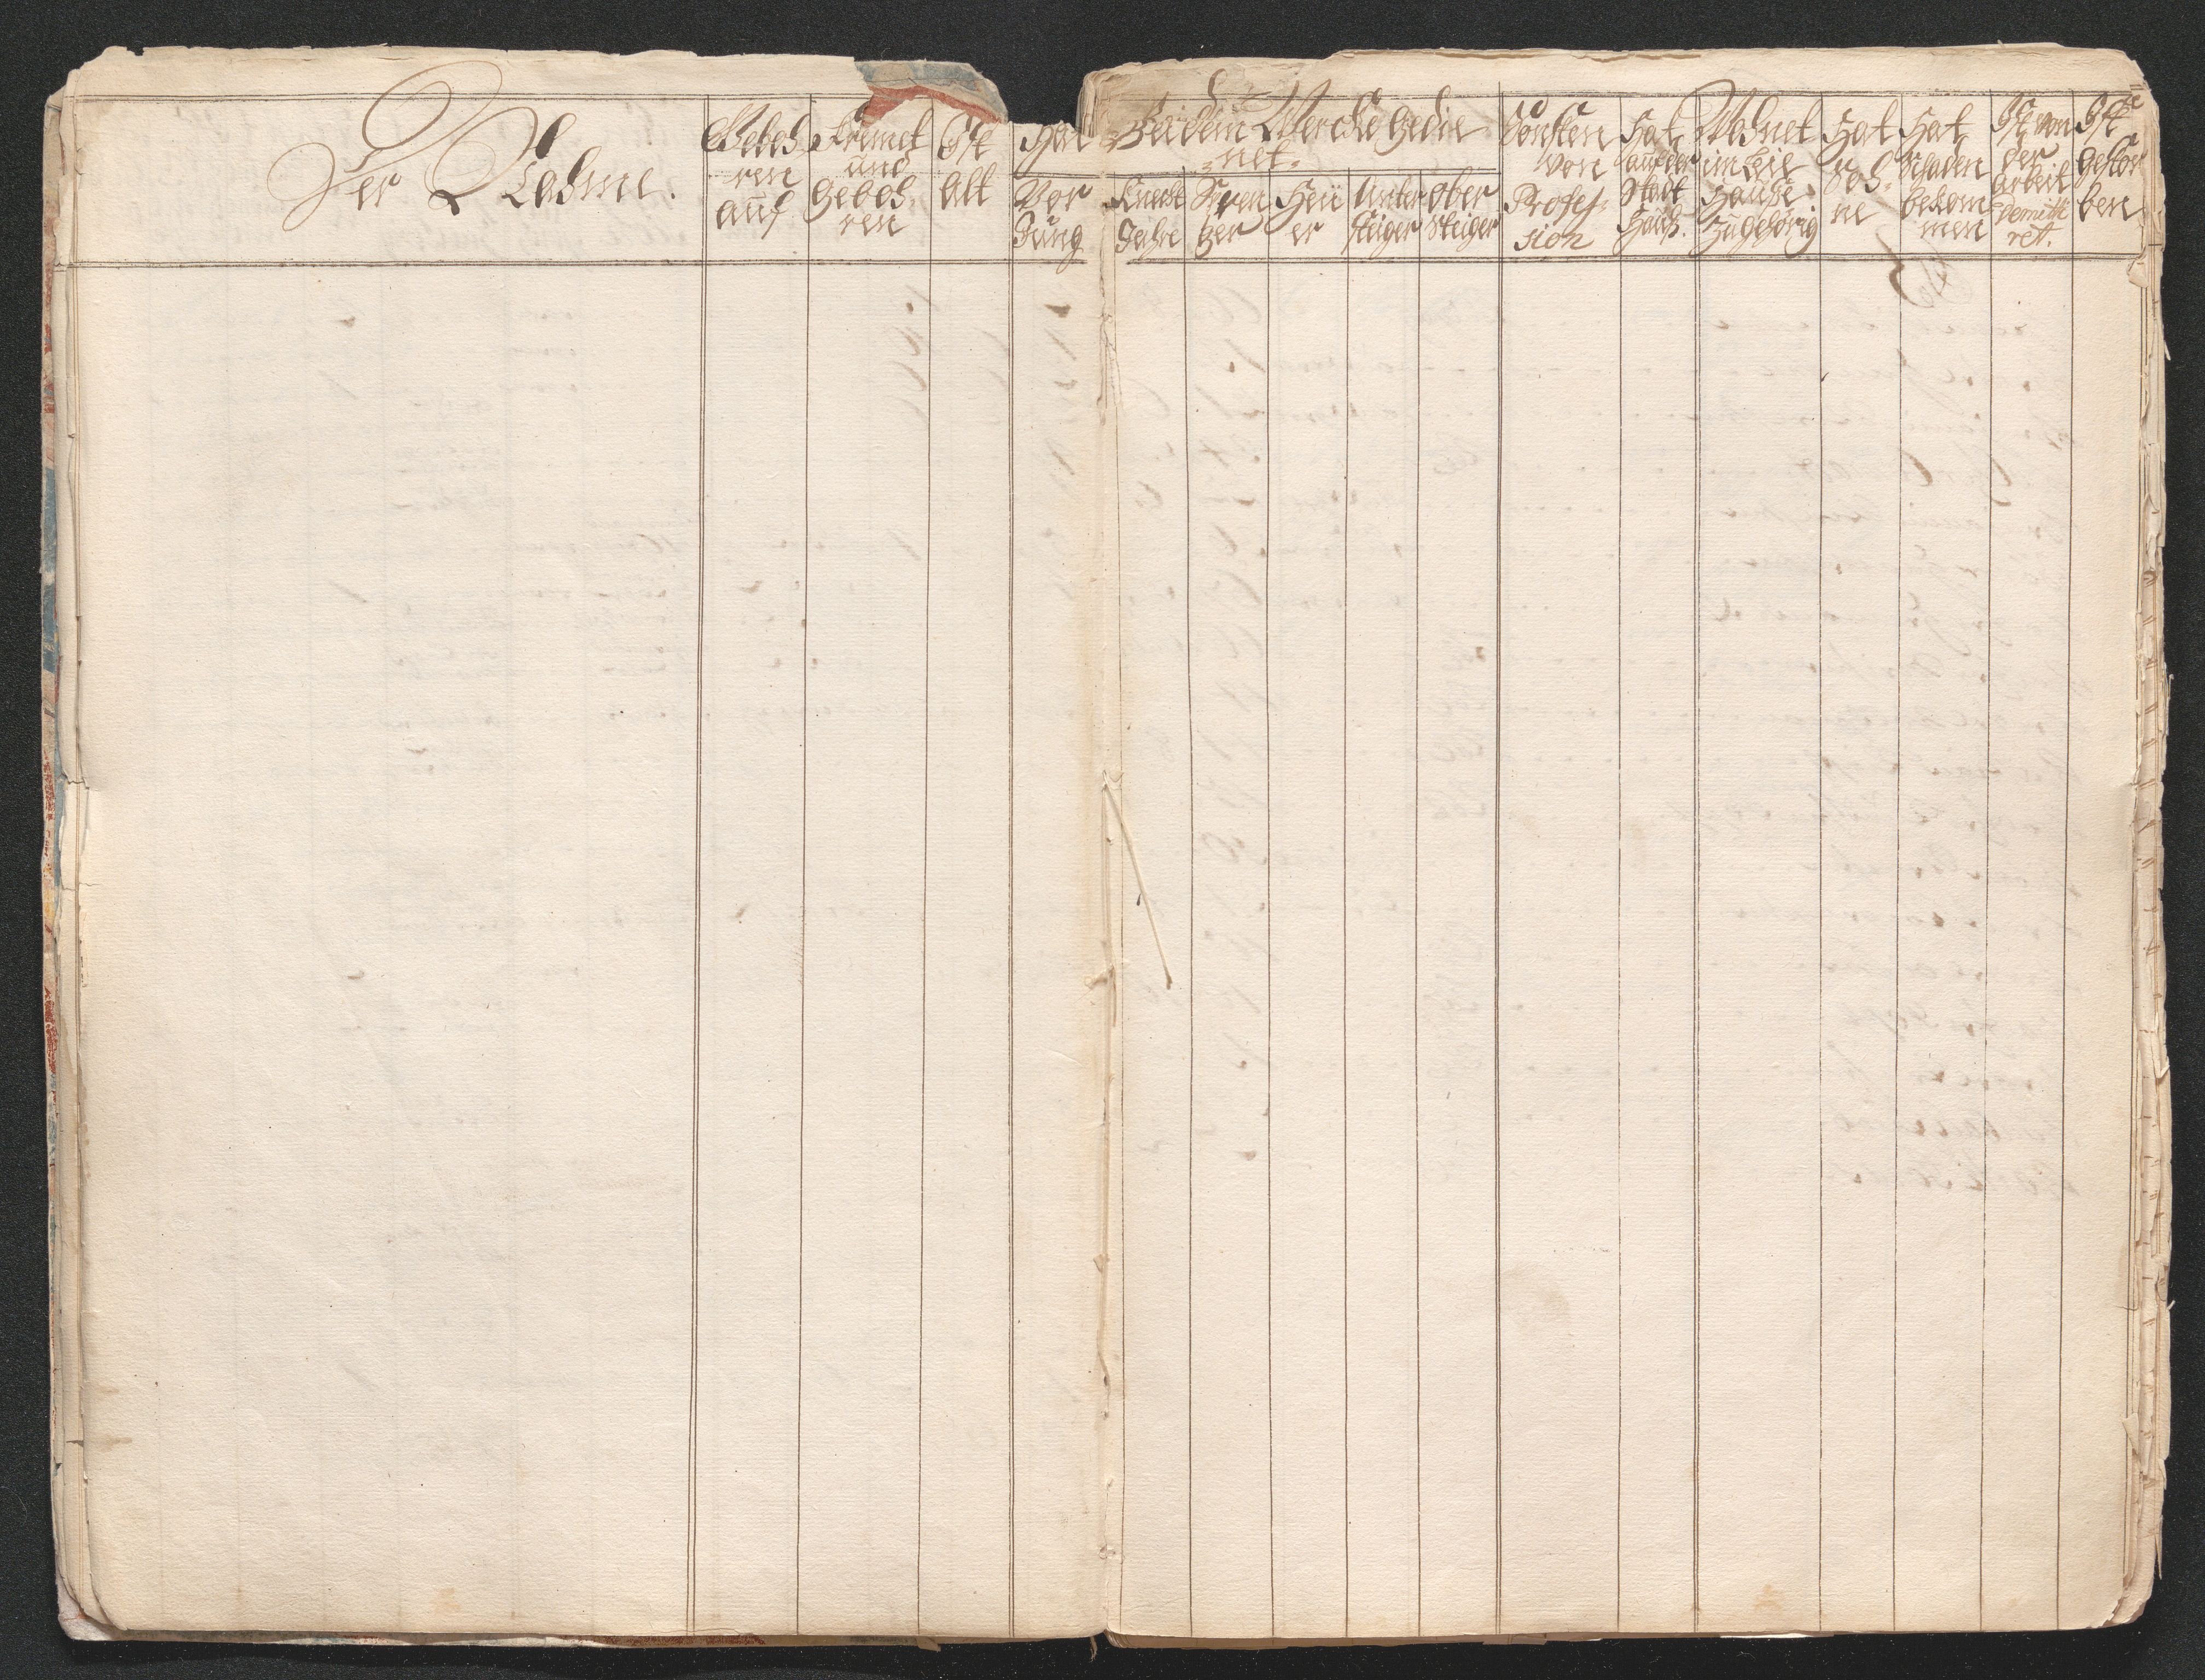 Der Nahme.
Geboh
ren
auf
Fremet
und
Geboh
ren
Ist
alt
Hat
Vor
Jung
Bei dem Wercke gedie
net.
Knecht
Jahre
Heü
er
Unter
steiger
Ober
Steiger
Sonsten
von
Profes-
sion
Hat
auf der
Stadt
Hauß.
Wohnet
im
Hauße
Zugehörig
Hat
Söh-
ne
Hat
Schaden
bekom
men
Ist von
der
arbeit
Demitti
ret.
Ist
gestor
ben